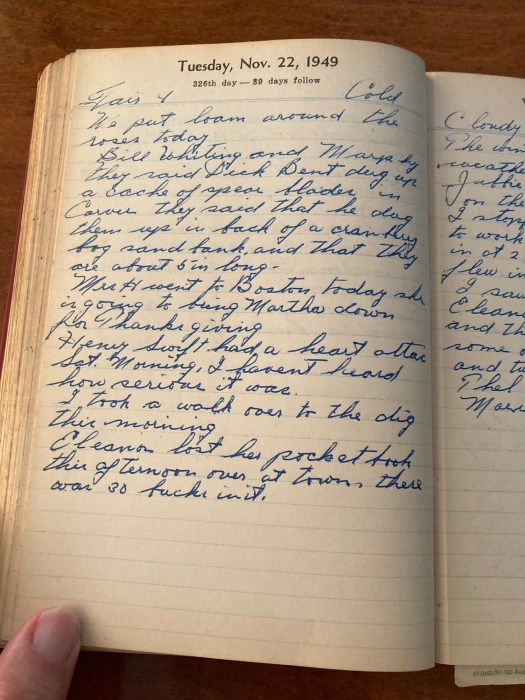 Tuesday, Nov. 22, 1949
326th day — 39 days follow
Fair & Cold
We put loam around the
roses today
Bill Whiting and Marp by
they said Dick Bent dug up
a cache of spear blades in
Carver they said that he dug
them up in back of a cranberry
bog sand bank. and that they
are about 5 in long.
Mrs H went to Boston today she
is going to bring Martha down
for Thanksgiving
Henry Swift had a heart attac
Sat. Morning, I havent heard
how serious it was.
I took a walk over to the dig
this morning
Eleanor lost her pocket book
this afternoon over at town, there
was 30 bucks in it.
Cloudy
The
weathe
on the
I stop
to work
in at 2
flew in
I saw
Elean
and th
some o
and
Phel